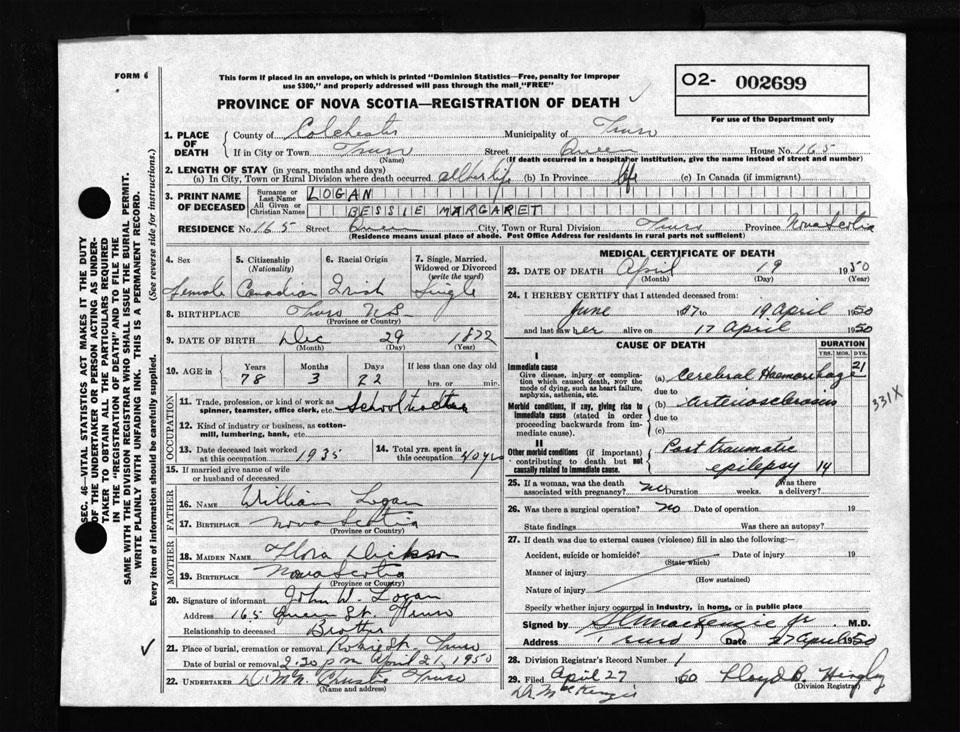 FORM 6
This form if placed in an envelope, on which is printed "Dominion Statistics—Free, penalty for improper
use $300," and properly addressed will pass through the mail "FREE"
O2- 002699
For use of the Department only
PROVINCE OF NOVA SCOTIA—REGISTRATION OF DEATH
1. PLACE OF DEATH County of Colchester Municipality of Truro
If in City or Town Truro Street Queen House No. 165
(Name) (If death occurred in a hospital or institution, give the name instead of street and number)
2. LENGTH OF STAY (in years, months and days)
(a) In City, Town or Rural Division where death occurred. all her life (b) In Province life (c) In Canada (if immigrant)
3. PRINT NAME OF DECEASED Surname or Last Name LOGAN
All Given or Christian Names BESSIE MARGARET
RESIDENCE No. 165 Street Queen City, Town or Rural Division Truro Province Nova Scotia
(Residence means usual place of abode. Post Office Address for residents in rural parts not sufficient)
4. Sex 5. Citizenship (Nationality) 6. Racial Origin 7. Single, Married, Widowed or Divorced (write the word)
Female Canadian Irish Single
8. BIRTHPLACE Truro N.S.
(Province or Country)
9. DATE OF BIRTH Dec 29 1872
(Month) (Day) (Year)
10. AGE in Years Months Days If less than one day old
78 3 22 hrs. or min.
OCCUPATION
11. Trade, profession or kind of work as
spinner, teamster, office clerk, etc. School teacher
12. Kind of industry or business, as cotton-
mill, lumbering, bank, etc.
13. Date deceased last worked at this occupation 1935 14. Total yrs. spent in this occupation 40 yrs
15. If married give name of wife
or husband of deceased
FATHER
16. NAME William Logan
17. BIRTHPLACE Nova Scotia
MOTHER
18. MAIDEN NAME Flora Dickson
19. BIRTHPLACE Nova Scotia
(Province or Country)
20. Signature of informant John W. Logan
Address 165 Queen St. Truro
Relationship to deceased Brother
21. Place of burial, cremation or removal Robie St. Truro
Date of burial or removal 2.30 p m April 21, 1950
22. UNDERTAKER Truro
(Name and address)
MEDICAL CERTIFICATE OF DEATH
23. DATE OF DEATH April 19 1950
(Month) (Day) (Year)
24. I HEREBY CERTIFY that I attended deceased from:
June 1947 to 19 April 1950
and last saw her alive on 17 April 1950
CAUSE OF DEATH DURATION
YRS. MOS. DYS.
I
Immediate cause
Give disease, injury or complica-
tion which caused death, NOT the
mode of dying, such as heart failure,
asphyxia, asthenia, etc.
(a) Cerebral Haemorrhage 21
due to
Morbid conditions, if any, giving rise to
immediate cause (stated in order
proceeding backwards from im-
mediate cause).
(b) Arteriosclerosis
due to
(c)
331X
II
Other morbid conditions (if important)
contributing to death but not
causally related to immediate cause.
Post traumatic
epilepsy 14
25. If a woman, was the death
associated with pregnancy? no Duration weeks. Was there a delivery?
26. Was there a surgical operation? no Date of operation 19
State findings Was there an autopsy?
27. If death was due to external causes (violence) fill in also the following:—
Accident, suicide or homicide? Date of injury 19
(State which)
Manner of injury
(How sustained)
Nature of injury
Specify whether injury occurred in Industry, in home, or in public place
Signed by MacKenzie Jr M.D.
Address Truro Date 27 April 1950
28. Division Registrar's Record Number 1
29. Filed April 27 1950 Floyd B. Hingley
(Division Registrar)
Dr. MacKenzie
SEC. 46—VITAL STATISTICS ACT MAKES IT THE DUTY
OF THE UNDERTAKER OR PERSON ACTING AS UNDER-
TAKER TO OBTAIN ALL THE PARTICULARS REQUIRED
IN THE "REGISTRATION OF DEATH" AND TO FILE THE
SAME WITH THE DIVISION REGISTRAR WHO SHALL ISSUE THE BURIAL PERMIT.
WRITE PLAINLY WITH UNFADING INK. THIS IS A PERMANENT RECORD.
Every item of information should be carefully supplied. (See reverse side for instructions.)